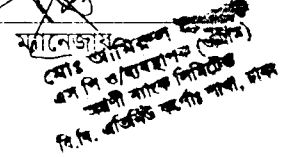 ম্যানেজার
মোঃ আমিরুল
এস পি ও/ব্যবস্থাপক
ব্যাংক লিমিটেড
বি.বি. এভিনিউ কর্পোঃ শাখা, ঢাকা